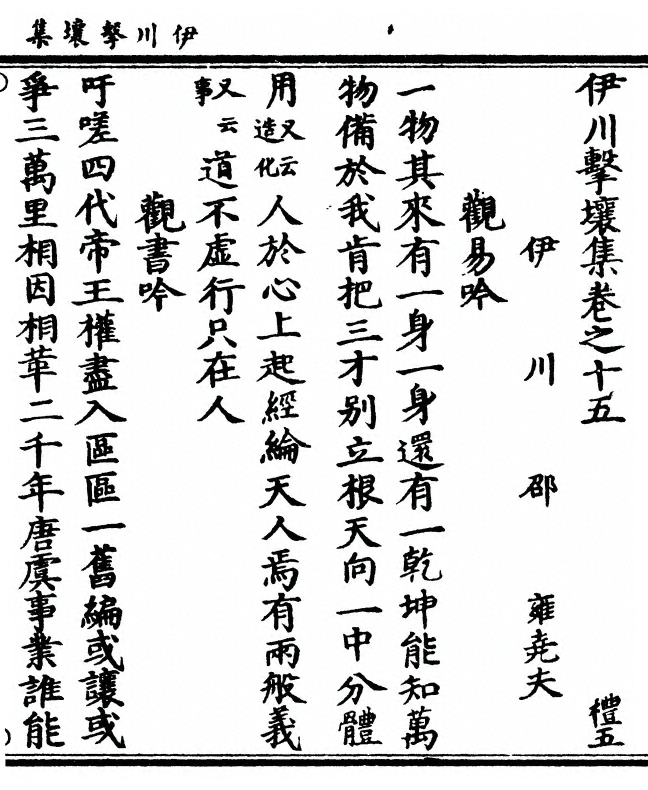 伊川擊壤集
伊川擊壤集卷之十五 禮五
伊川邵雍堯夫
觀易吟
一物其來有一身一身還有一乾坤能知萬
物備於我肯把三才别立根天向一中分體
用又云造化人於心上起經綸天人焉有兩般義
又云事道不虛行只在人
觀書吟
吁嗟四代帝王權盡入區區一舊編或讓或
爭三萬里相因相革二千年唐虞事業誰能